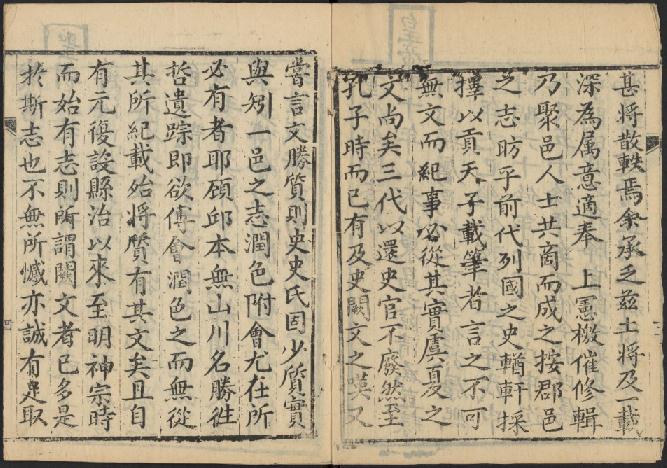 甚將散軼焉余承乏茲土將及一載
深為属意適奉　上憲檄催修輯
乃聚邑人士共商而成之按郡邑
之志昉乎前代列國之史輶軒採
擇以貢天子載筆者言之不可
無文而紀事必從其實虞夏之
文尚矣三代以還史官不廢然至
孔子時而已有及史闕文之嘆又
嘗言文勝質則史史氏固少質實
與矧一邑之志潤色附會尤在所
必有者耶頎邱本無山川名勝徃
哲遺踪即欲傅會潤色之而無從
其所紀載殆將質有其文矣且自
有元復設縣治以來至明神宗時
而始有志則所謂闕文者已多是
於斯志也不無所憾亦誠有足取